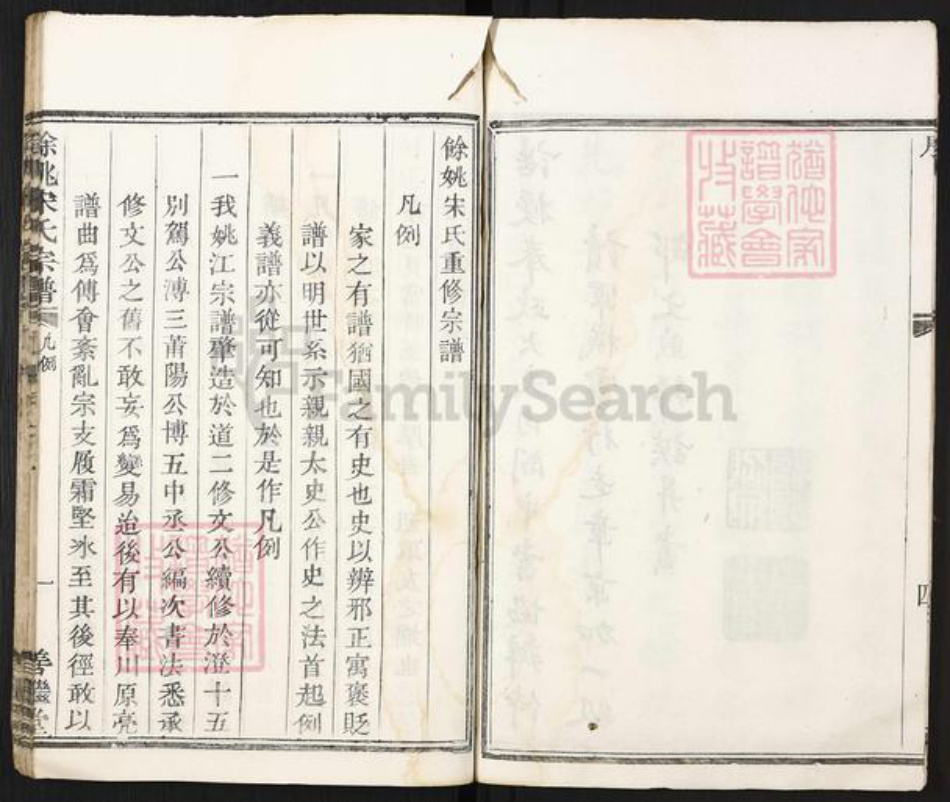 序
四
餘姚宋氏重修宗譜
凡例
家之有譜猶國之有史也史以辨邪正寓褒貶
譜以明世系示親親太史公作史之法首起例
義譜亦從可知也於是作凡例
一我姚江宗譜肇造於道二修文公續修於澄十五
別駕公溥三莆陽公博五中丞公編次書法悉承
修文公之舊不敢妄爲變易迨後有以奉川原亮
譜曲爲傅會紊亂宗支履霜堅氷至其後徑敢以
餘姚宋氏宗譜
凡例
一
善繼堂
猶他家譜學會收藏
FamilySearch